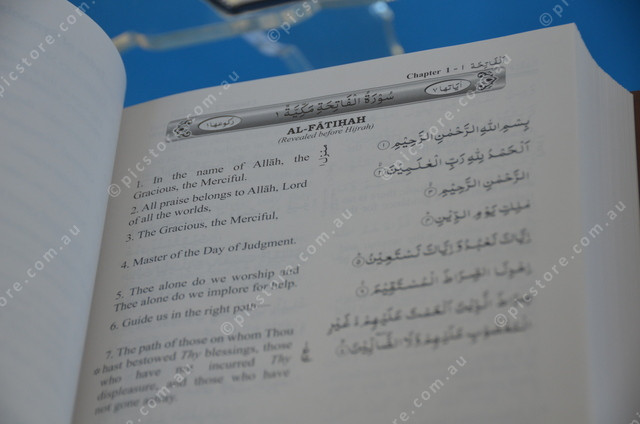 Chapter 1 - ١ الفاتحة
اياتها ٧
سورة الفاتحة مكية ١
ركوعها ١
AL-FĀTIḤAH
(Revealed before Hijrah)
1. In the name of Allāh, the
Gracious, the Merciful.
2. All praise belongs to Allāh, Lord
of all the worlds,
3. The Gracious, the Merciful,
4. Master of the Day of Judgment.
5. Thee alone do we worship and
Thee alone do we implore for help.
6. Guide us in the right path—
7. The path of those on whom Thou
hast bestowed Thy blessings, those
who have not incurred Thy
displeasure, and those who have
not gone astray.
بِسْمِ اللّٰهِ الرَّحْمٰنِ الرَّحِيْمِ
اَلْحَمْدُ لِلّٰهِ رَبِّ الْعٰلَمِيْنَ
الرَّحْمٰنِ الرَّحِيْمِ
مٰلِكِ يَوْمِ الدِّيْنِ
اِيَّاكَ نَعْبُدُ وَ اِيَّاكَ نَسْتَعِيْنُ
اِهْدِنَا الصِّرَاطَ الْمُسْتَقِيْمَ
صِرَاطَ الَّذِيْنَ اَنْعَمْتَ عَلَيْهِمْ غَيْرِ
الْمَغْضُوْبِ عَلَيْهِمْ وَلَا الضَّآلِّيْنَ
© picstore.com.au